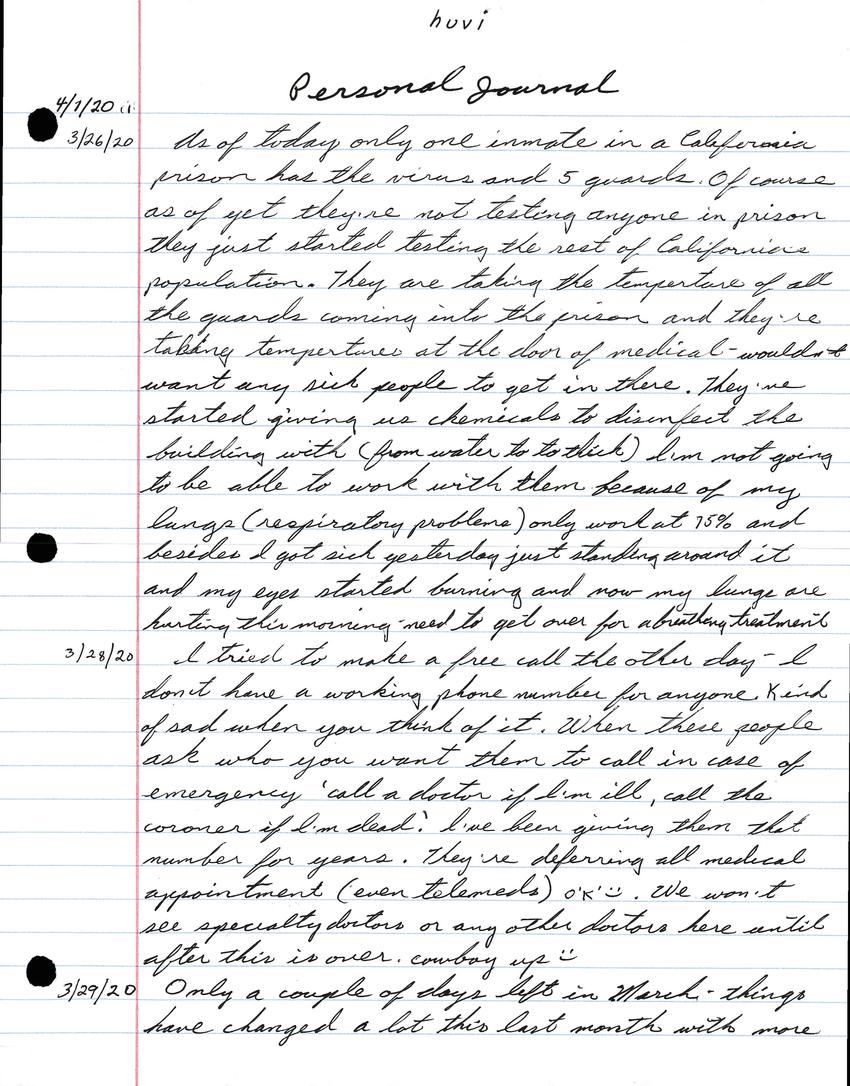 huvi
Personal Journal
4/1/20
3/26/20 As of today only one inmate in a California
prison has the virus and 5 guards. Of course
as of yet they're not testing anyone in prison
they just started testing the rest of Californias
population. They are taking the temperture of all
the guards coming into the prison and they're
taking tempertures at the door of medical - wouldn't
want any sick people to get in there. They've
started giving us chemicals to disinfect the
building with (from water to to thick) I'm not going
to be able to work with them because of my
lungs (respiratory problems) only work at 75% and
besides I got sick yesterday just standing around it
and my eyes started burning and now my lungs are
hurting this morning - need to get over for a breathing treatment
3/28/20 I tried to make a free call the other day - I
don't have a working phone number for anyone. Kind
of sad when you think of it. When these people
ask who you want them to call in case of
emergency 'call a doctor if I'm ill, call the
coroner if I'm dead'. I've been giving them that
number for years. They're deferring all medical
appointment (even telemeds) O'K' :). We won't
see specialty doctors or any other doctors here until
after this is over. cowboy up :)
3/29/20 Only a couple of days left in March - things
have changed a lot this last month with more